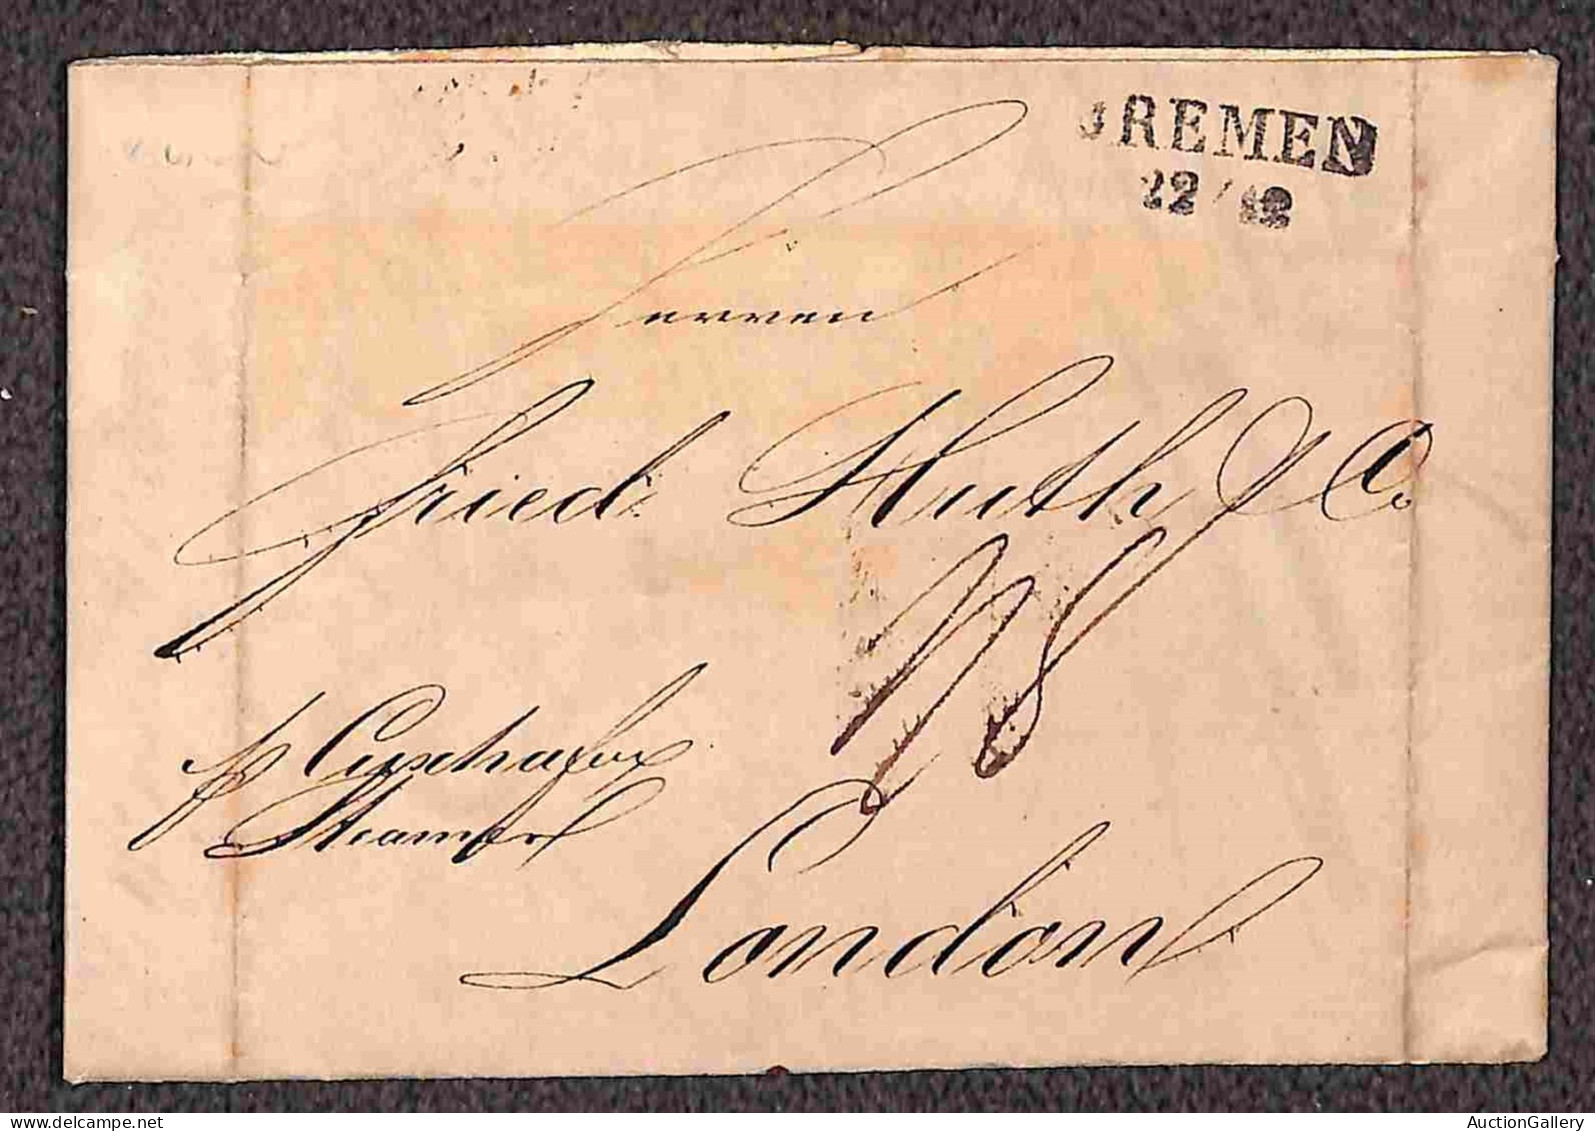 BREMEN
22/12
Herren
Fried. Huth & Co.
1/8
p Cuxhafen
Steamer
London
AuctionGallery